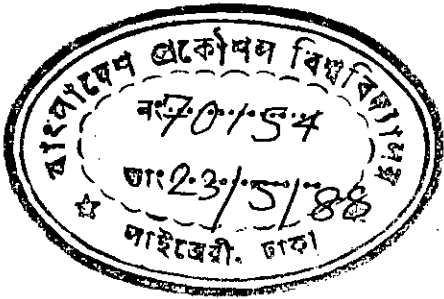 বাংলাদেশ প্রকৌশল বিশ্ববিদ্যালয়
নং 70154
তাং 23/5/88
লাইব্রেরী, ঢাকা